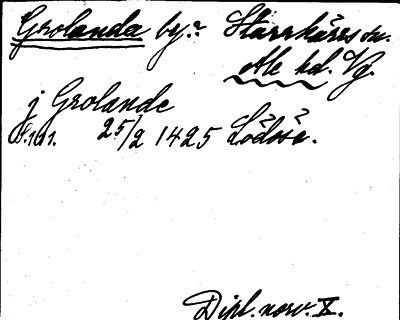 Grolanda by.? Starrkärrs sn.
Ale hd. Vg.
j Grolande
25/2 1425 Lödöse.
Dipl. norv. X.